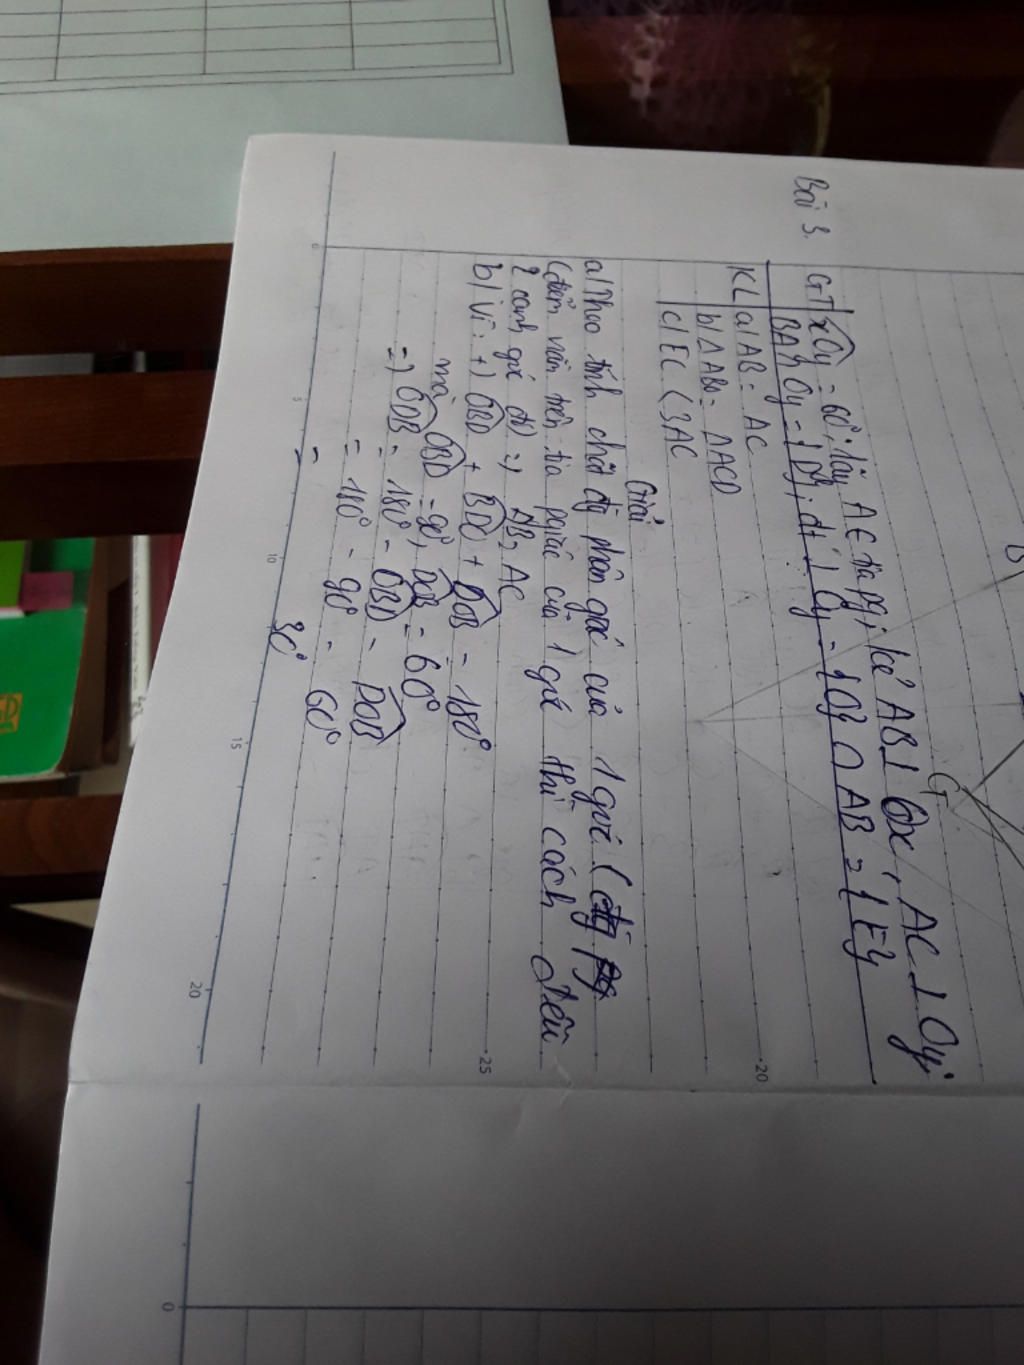 Bài 3.
GT xOy = 60°; lấy A ∈ tia pg; kẻ AB ⊥ Ox, AC ⊥ Oy;
BA ∩ Oy = {D}; ⊥ Oy = {O} ∩ AB = {E}
KL a/ AB = AC
b/ Δ ABO = Δ ACD
c/ EC < 3AC
Giải
a/ Theo tính chất đg phân giác của 1 góc
(điểm nằm trên tia pgiác của 1 góc thì cách đều
2 cạnh góc đó) => AB = AC
b/ Vì: +) OBD + BDO + DOB = 180°
mà OBD = 90°, DOB = 60°
=> ODB = 180° - OBD - DOB
= 180° - 90° - 60°
= 30°
B
0
5
10
15
20
20
25
0